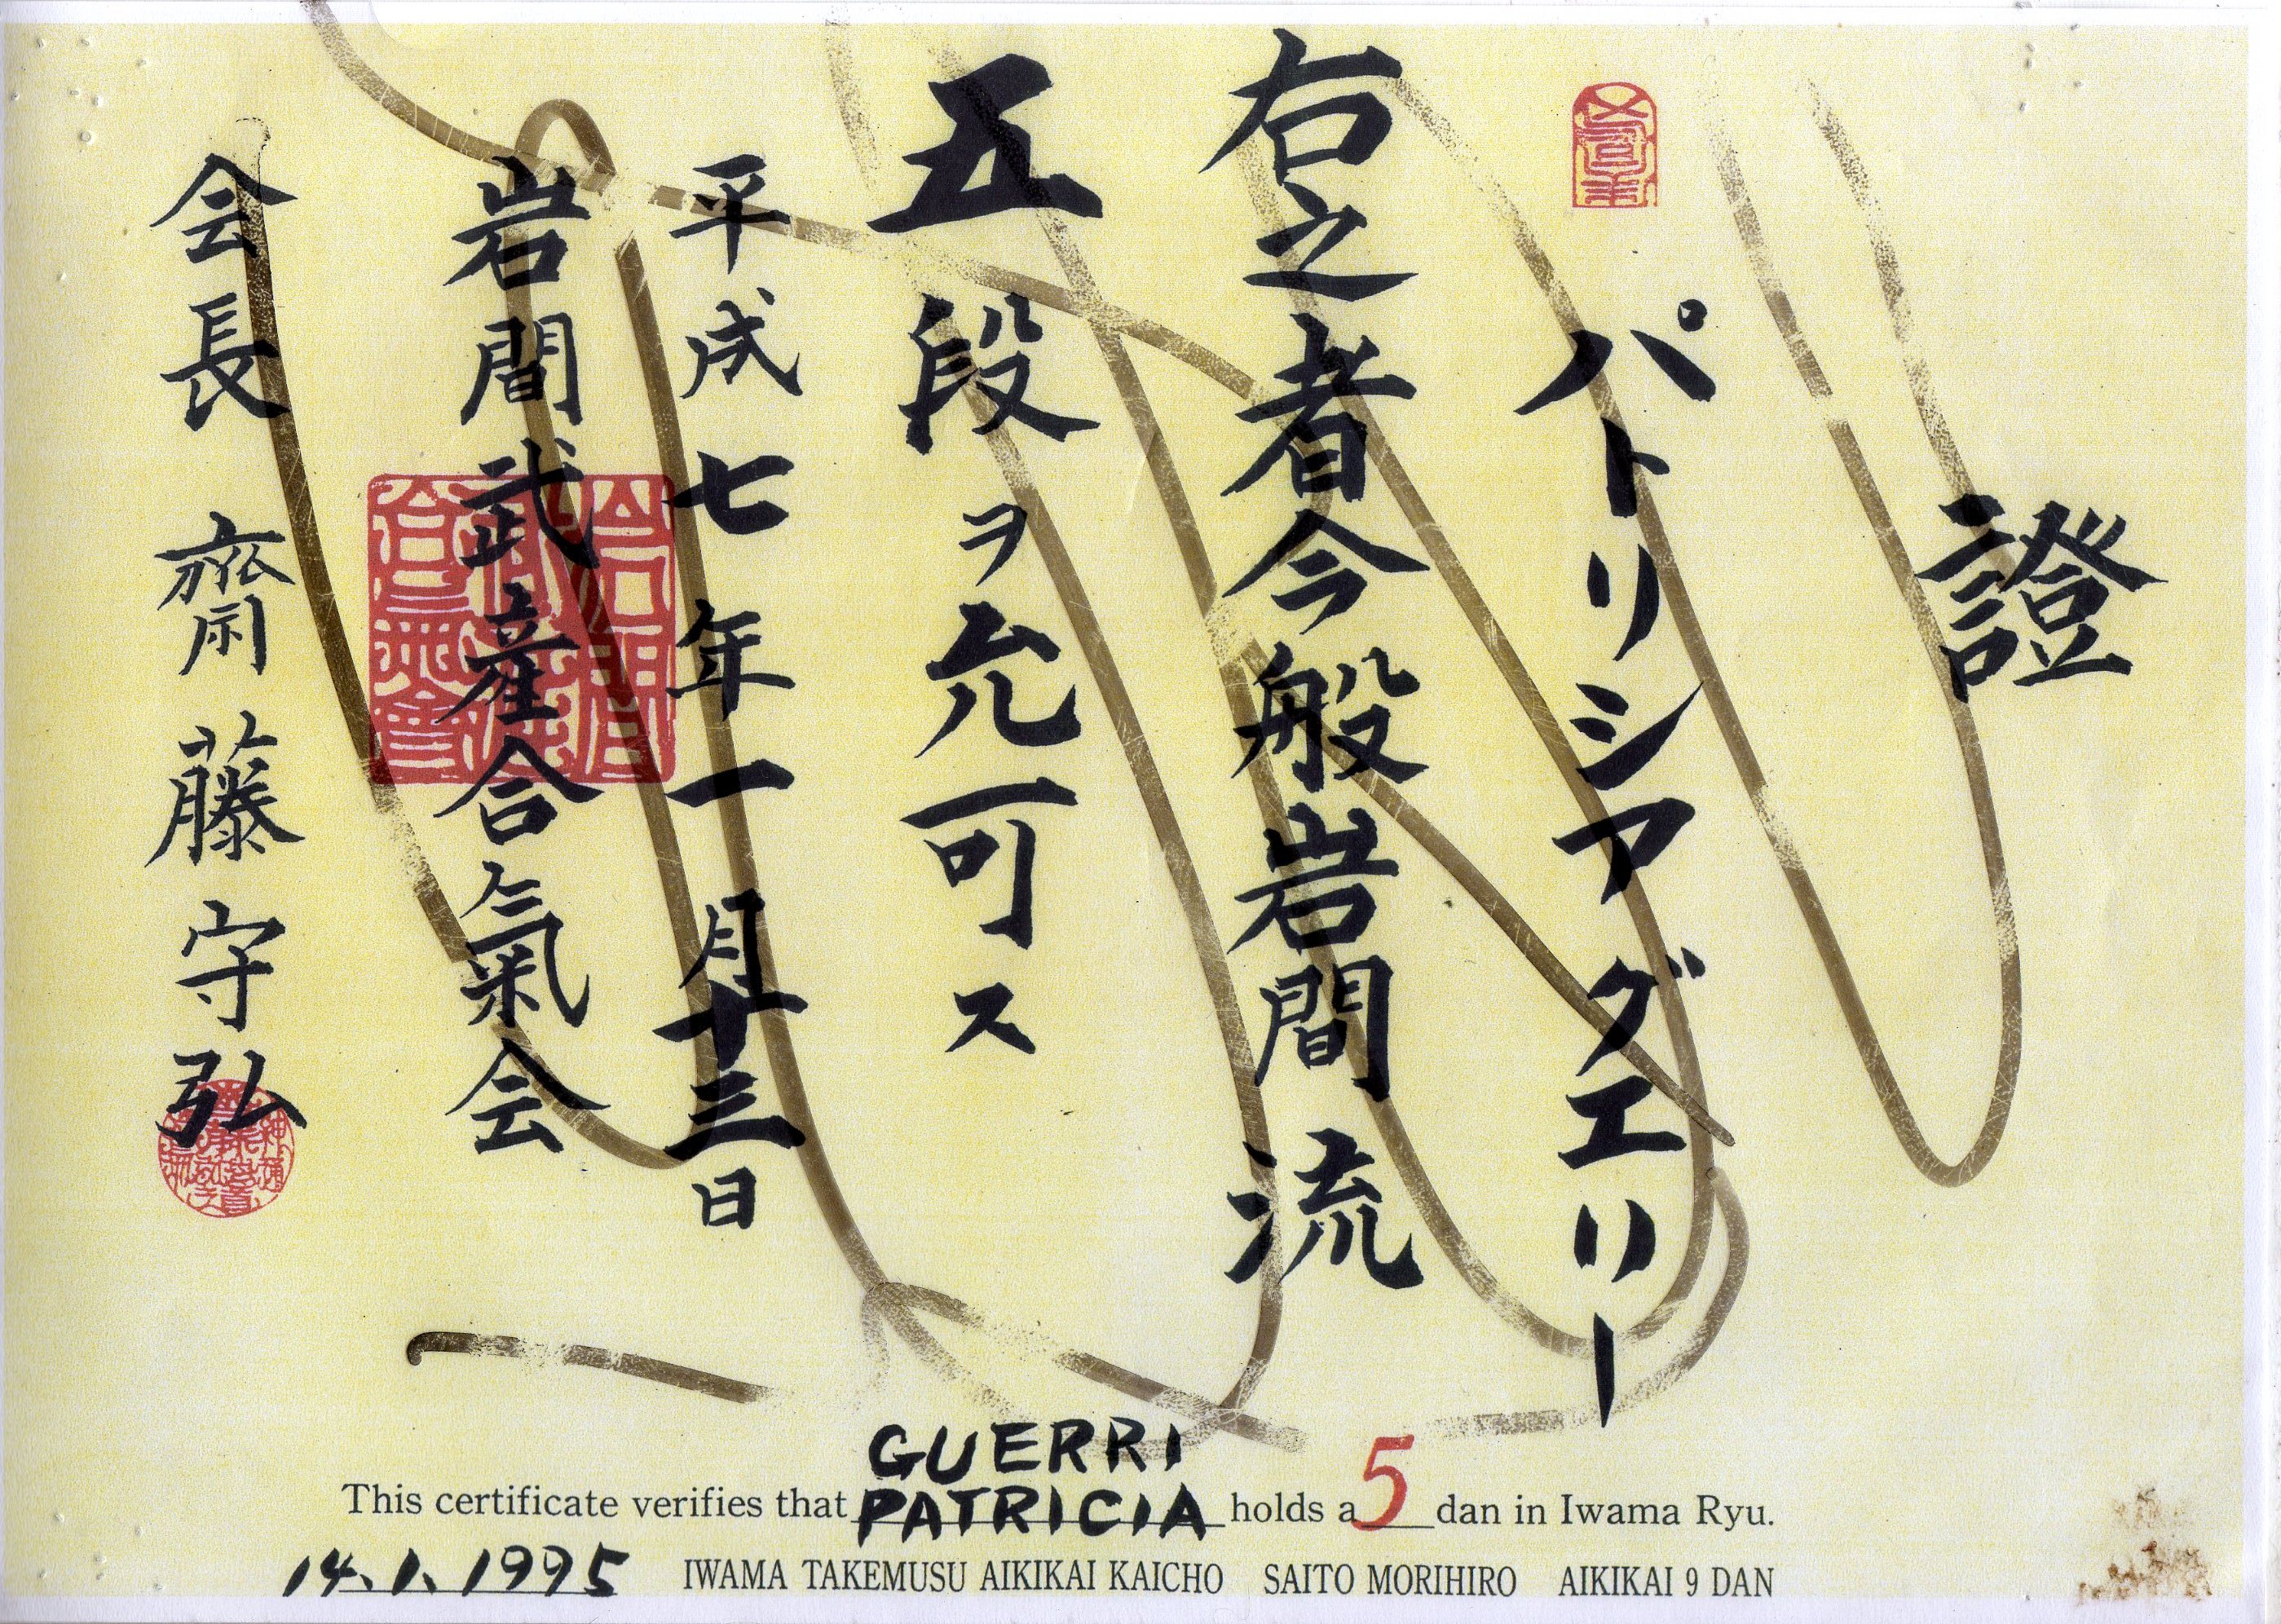 證
パトリシアグエリー
右之者今般岩間流
五段ヲ允可ス
平成七年一月十三日
岩間武產合氣会
会長 齋藤守弘
GUERRI
This certificate verifies that PATRICIA holds a 5 dan in Iwama Ryu.
14.1.1995 IWAMA TAKEMUSU AIKIKAI KAICHO SAITO MORIHIRO AIKIKAI 9 DAN